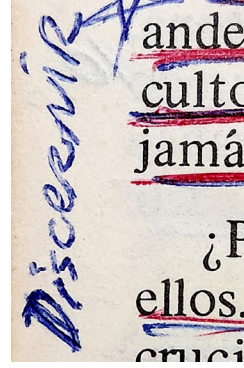 Discernir
ande
culto
jamá
¿P
ellos.
cruci